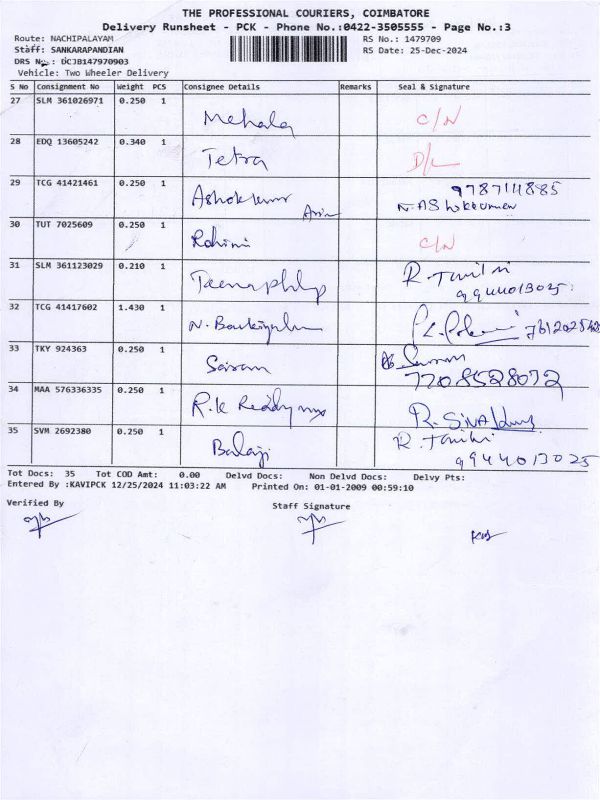 THE PROFESSIONAL COURIERS, COIMBATORE
Delivery Runsheet - PCK - Phone No.:0422-3505555 - Page No.:3
Route: NACHIPALAYAM RS No.: 1479709
Staff: SANKARAPANDIAN RS Date: 25-Dec-2024
DRS No.: UCJB147970903
Vehicle: Two Wheeler Delivery
S No Consignment No Weight PCS Consignee Details Remarks Seal & Signature
27 SLM 361026971 0.250 1 Mehala C/N
28 EDQ 13605242 0.340 1 Tetra D/L
29 TCG 41421461 0.250 1 Ashokkumar 9787114885
N. AShokkumar
30 TUT 7025609 0.250 1 Rohini C/N
31 SLM 361123029 0.210 1 R. Tamilni
9944013025
32 TCG 41417602 1.430 1
33 TKY 924363 0.250 1 Sairam
7708528072
34 MAA 576336335 0.250 1 R.K Reddy
35 SVM 2692380 0.250 1 Balaji
9944013025
Tot Docs: 35 Tot COD Amt: 0.00 Delvd Docs: Non Delvd Docs: Delvy Pts:
Entered By :KAVIPCK 12/25/2024 11:03:22 AM Printed On: 01-01-2009 00:59:10
Verified By Staff Signature